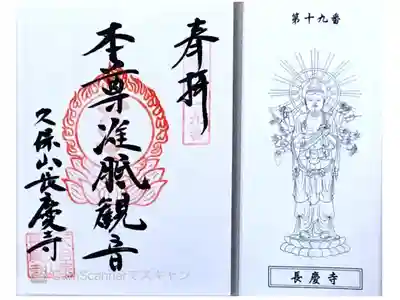 奉拝
本尊准胝観音
久保山長慶寺
第十九番
長慶寺
CamScannerでスキャン